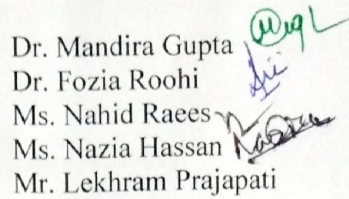 Dr. Mandira Gupta
Dr. Fozia Roohi
Ms. Nahid Raees
Ms. Nazia Hassan
Mr. Lekhram Prajapati